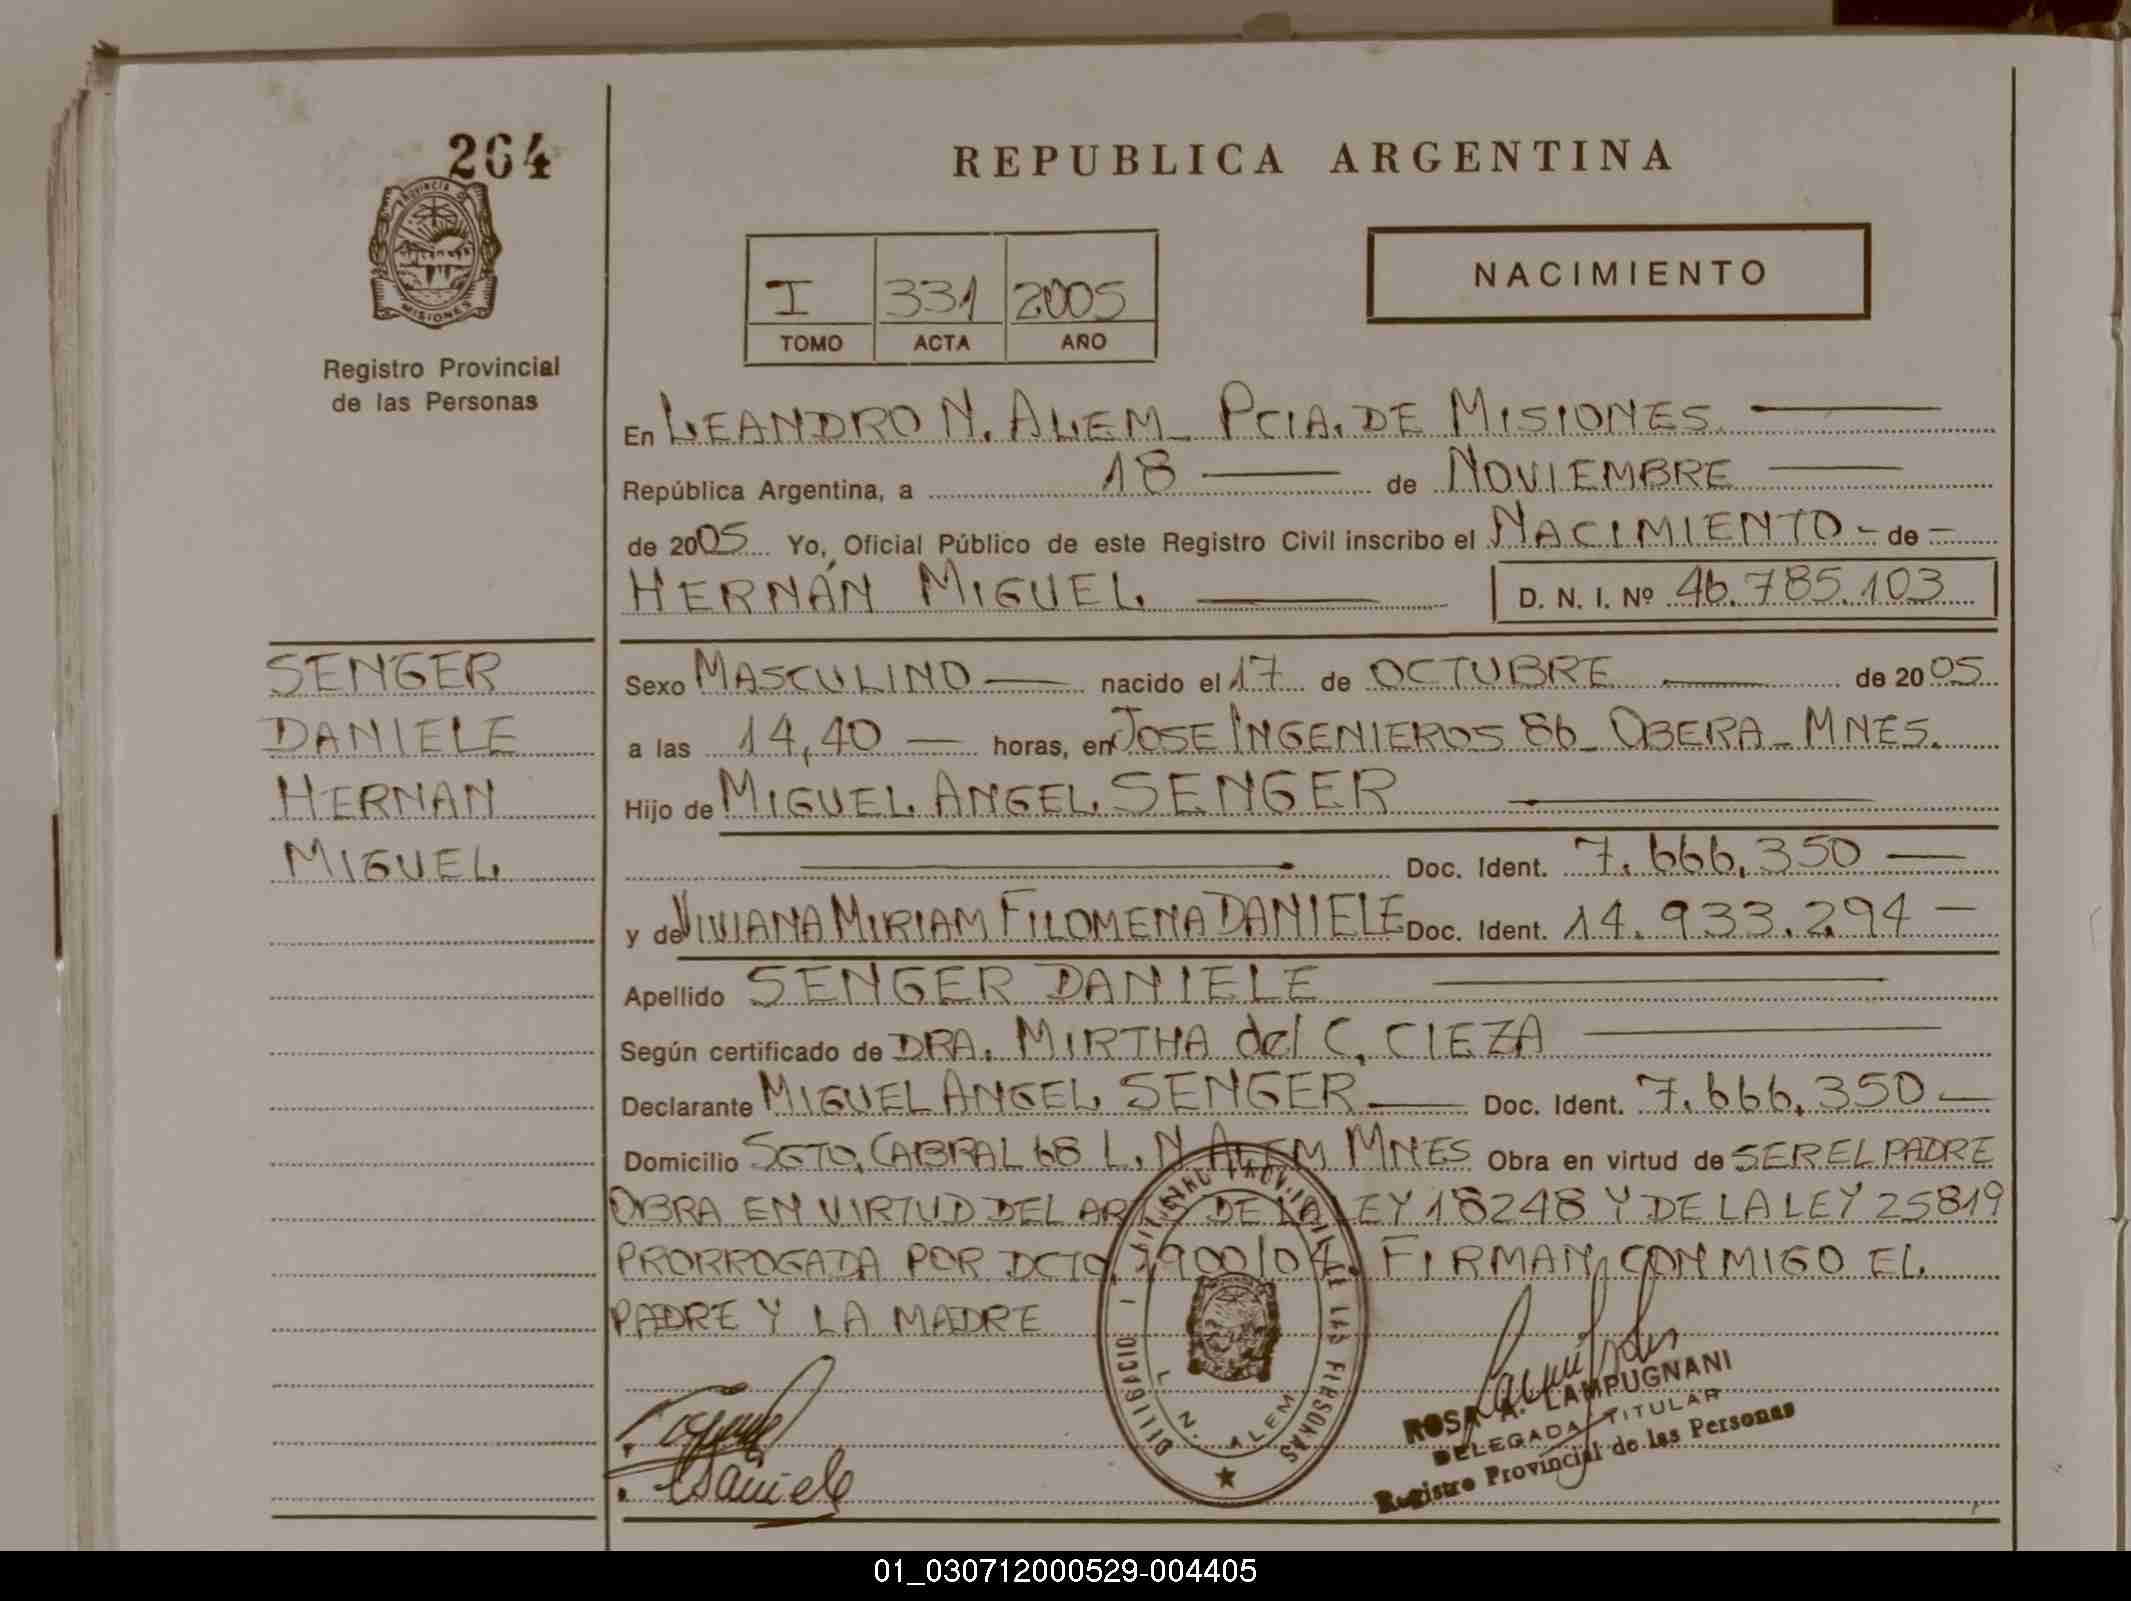 264
PROVINCIA DE
MISIONES
Registro Provincial
de las Personas
REPUBLICA ARGENTINA
I 331 2005
TOMO ACTA AÑO
NACIMIENTO
En LEANDRO N. ALEM_ PCIA. DE MISIONES.
República Argentina, a 18 de NOVIEMBRE
de 2005 Yo, Oficial Público de este Registro Civil inscribo el NACIMIENTO - de -
HERNÁN MIGUEL D. N. I. Nº 46.785.103
SENGER
DANIELE
HERNAN
MIGUEL
Sexo MASCULINO nacido el 17 de OCTUBRE de 2005
a las 14,40 horas, en JOSE INGENIEROS 86_ OBERA_ MNES.
Hijo de MIGUEL ANGEL SENGER
Doc. Ident. 7.666.350
y de VIVIANA MIRIAM FILOMENA DANIELE Doc. Ident. 14.933.294
Apellido SENGER DANIELE
Según certificado de DRA. MIRTHA del C. CIEZA
Declarante MIGUEL ANGEL SENGER Doc. Ident. 7.666.350
Domicilio SGTO. CABRAL 68 L. N ALEM MNES Obra en virtud de SER EL PADRE
OBRA EN VIRTUD DEL DE LA LEY 18248 Y DE LA LEY 25819
PRORROGADA POR DCTO. 1900/04. FIRMAN CONMIGO EL
PADRE Y LA MADRE
L. N. ALEM
Daniele
ROSA A. LAMPUGNANI
DELEGADA TITULAR
Registro Provincial de las Personas
01_030712000529-004405